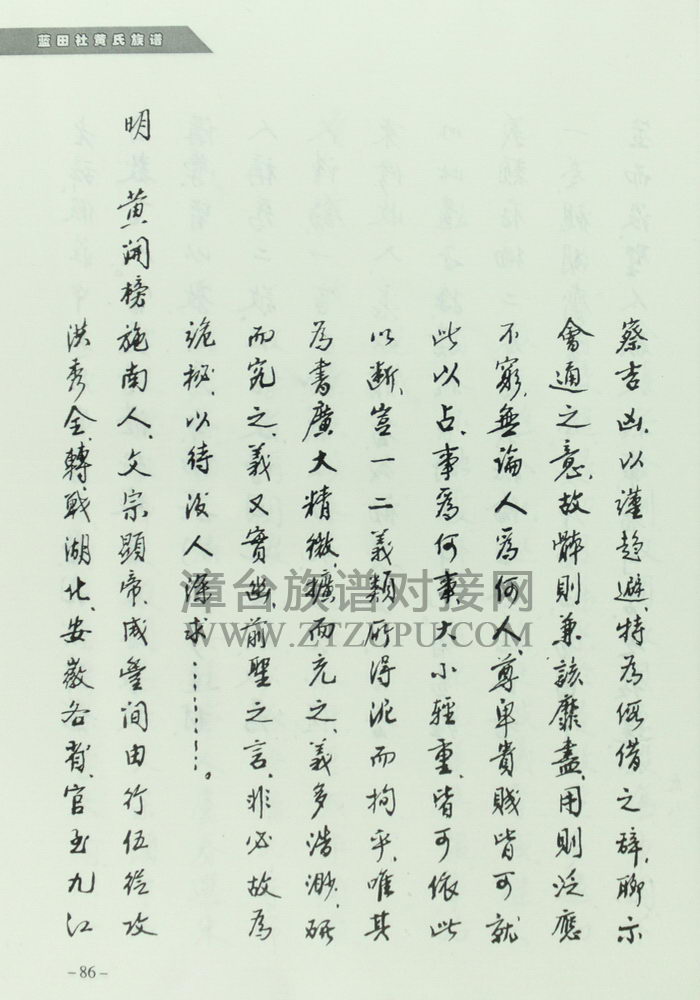 蓝田社黄氏族谱
察吉凶、以謹趋避、特為假借之辞、聊示
會通之意、故辭則兼該靡盡、用則泛應
不窮、無論人爲何人、尊卑貴賤皆可就
此以占、事爲何事、大小輕重、皆可依此
以断、豈一二義類所得泥而拘乎、唯其
為書廣大精微、擴而充之、義多浩渺、研
而究之、義又實幽、前聖之言、非必故為
詭秘、以待後人深求………。
明 黄開榜施南人、文宗顯帝、咸豐间由行伍從攻
洪秀全、轉戰湖北、安徽各省、官至九江
漳台族谱对接网
WWW.ZTZUPU.COM
-86-